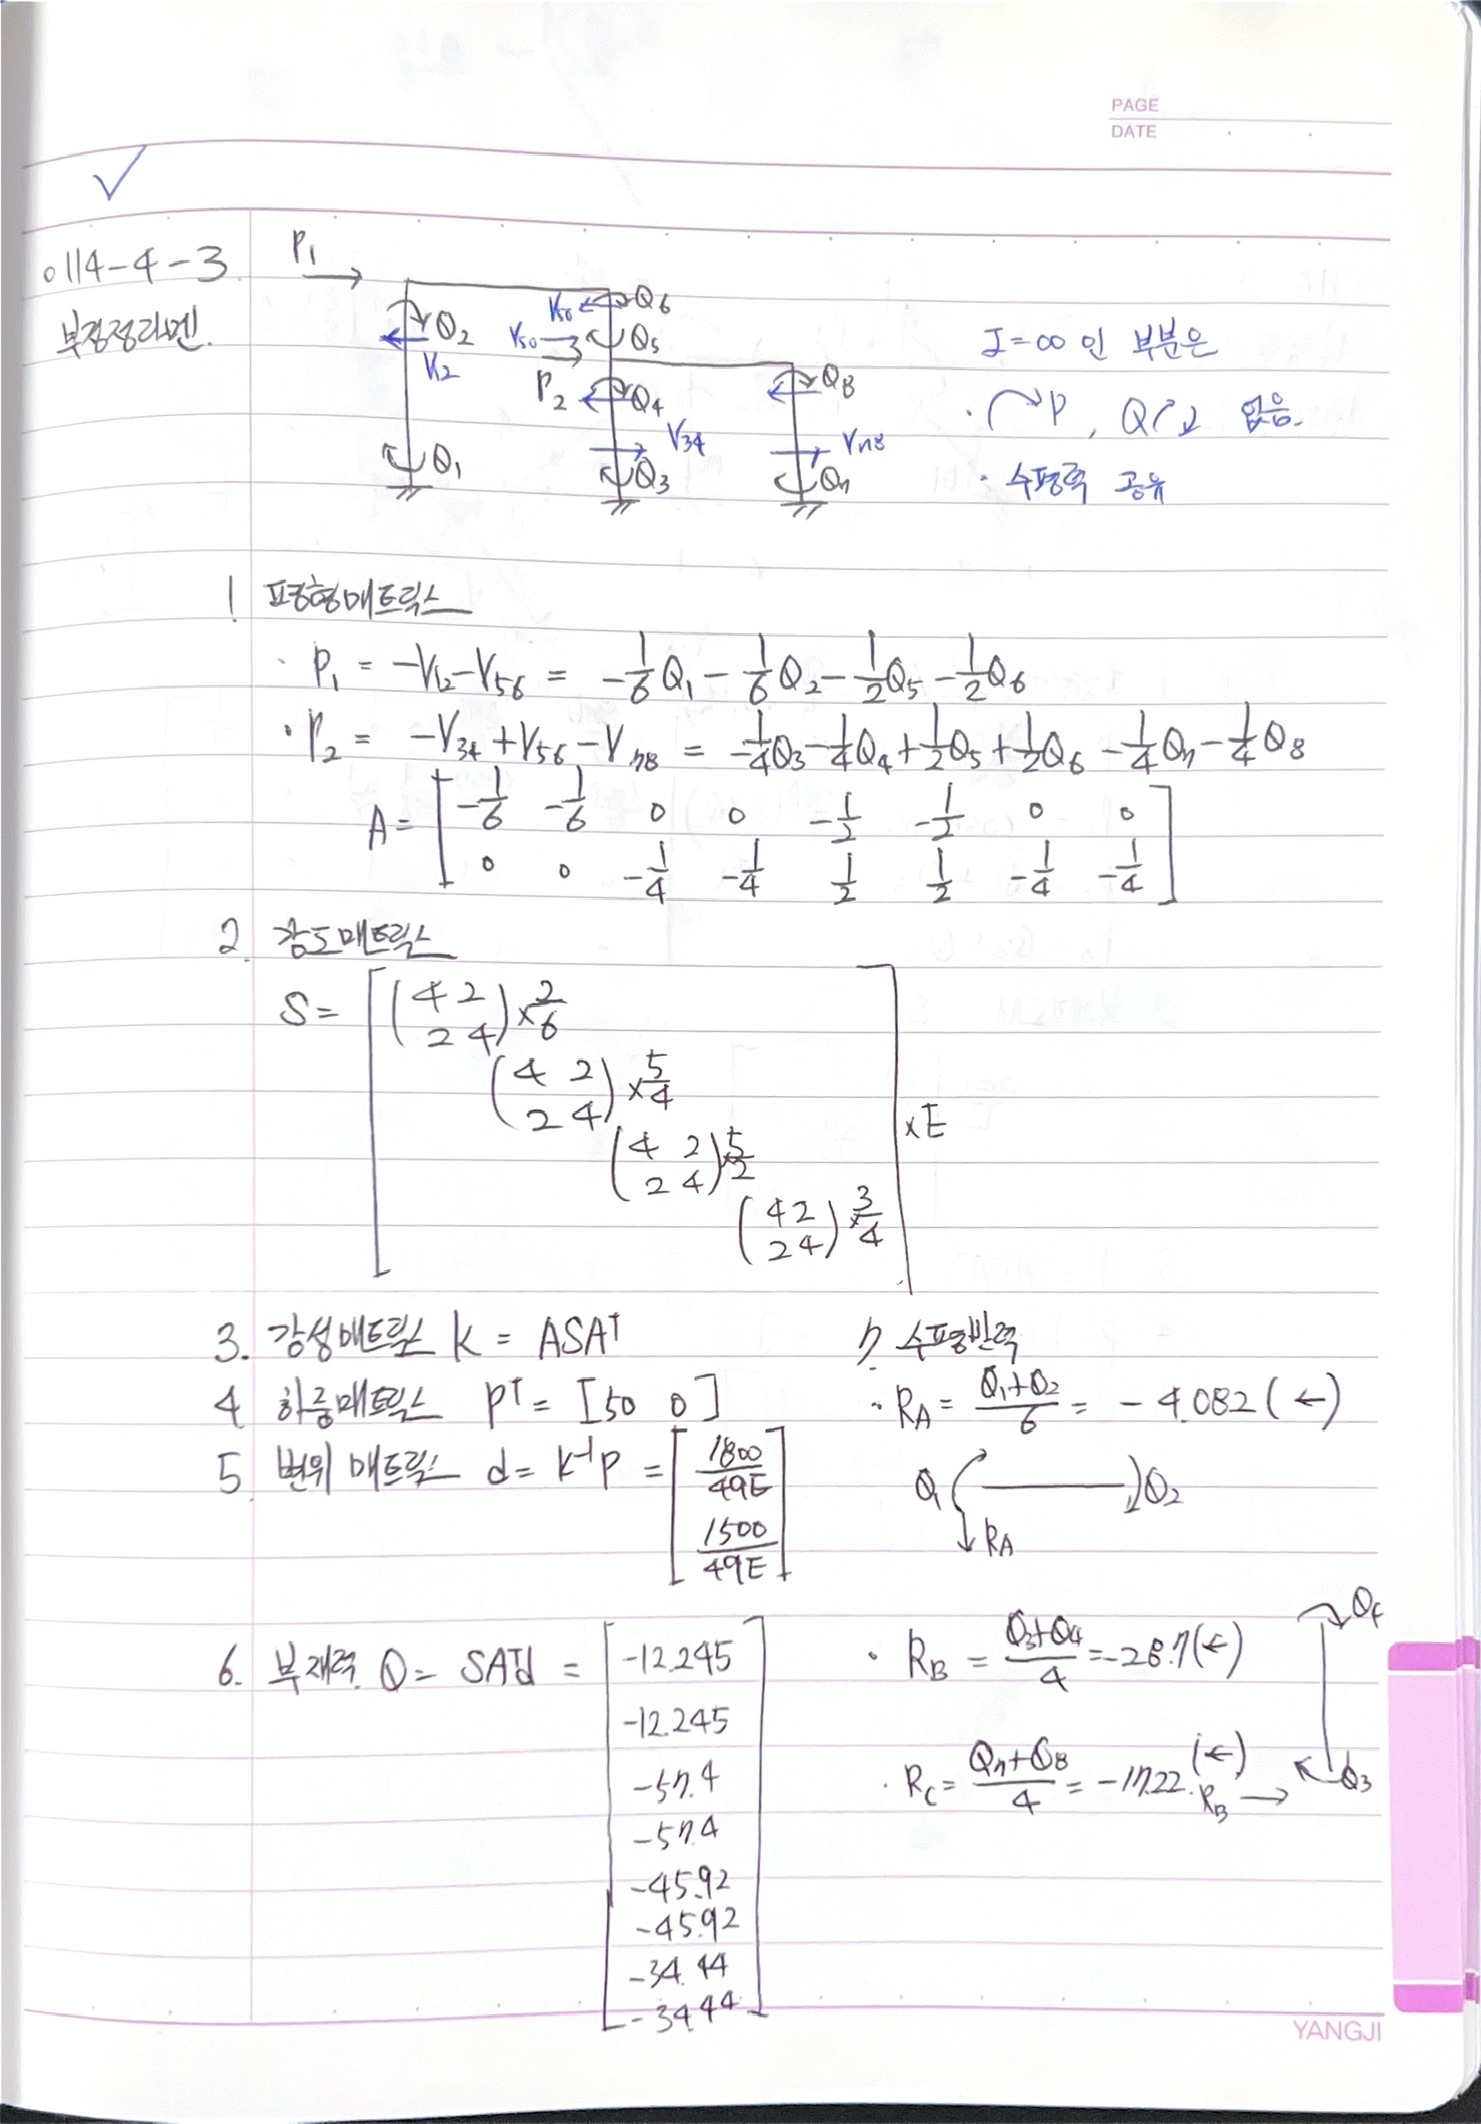 PAGE
DATE
○ 114-4-3
부정정라멘.
P₁
Q₂
V₁₂
Q₁
V₅₆
V₅₆
Q₆
Q₅
P₂
Q₄
V₃₄
Q₃
Q₈
V₇₈
Q₇
I=∞ 인 부분은
· P, Q 없음.
· 수평력 공유
1 평형매트릭스
· P₁ = -V₁₂-V₅₆ = -1/6 Q₁ - 1/6 Q₂ - 1/2 Q₅ - 1/2 Q₆
· P₂ = -V₃₄+V₅₆-V₇₈ = -1/4 Q₃ - 1/4 Q₄ + 1/2 Q₅ + 1/2 Q₆ - 1/4 Q₇ - 1/4 Q₈
A = [ -1/6 -1/6 0 0 -1/2 -1/2 0 0
0 0 -1/4 -1/4 1/2 1/2 -1/4 -1/4 ]
2. 강도매트릭스
S = [ (4 2
2 4) × 2/6
(4 2
2 4) × 5/4
(4 2
2 4) × 5/2
(4 2
2 4) × 3/4 ] × E
3. 강성매트릭스 K = ASAᵀ
4 하중매트릭스 Pᵀ = [50 0]
5. 변위 매트릭스 d = K⁻¹P = [ 1800/49E
1500/49E ]
6. 부재력 Q = SAᵀd = [ -12.245
-12.245
-57.4
-57.4
-45.92
-45.92
-34.44
-34.44 ]
7. 수평반력
· R_A = (Q₁+Q₂)/6 = -4.082 (←)
Q₁ Q₂
R_A
· R_B = (Q₃+Q₄)/4 = -28.7 (←)
Q₄
· R_C = (Q₇+Q₈)/4 = -17.22. (←)
R_B → Q₃
YANGJI